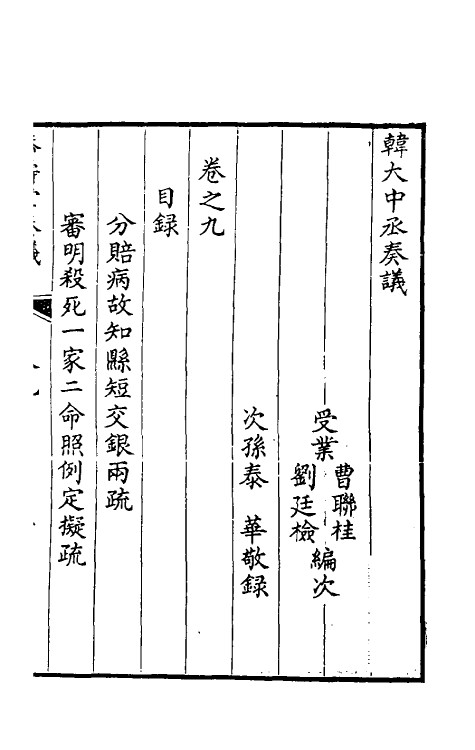 韓大中丞奏議
受業
曹聯桂
劉廷檢
編次
次孫泰　華敬録
卷之九
目録
分賠病故知縣短交銀兩疏
審明殺死一家二命照例定擬疏